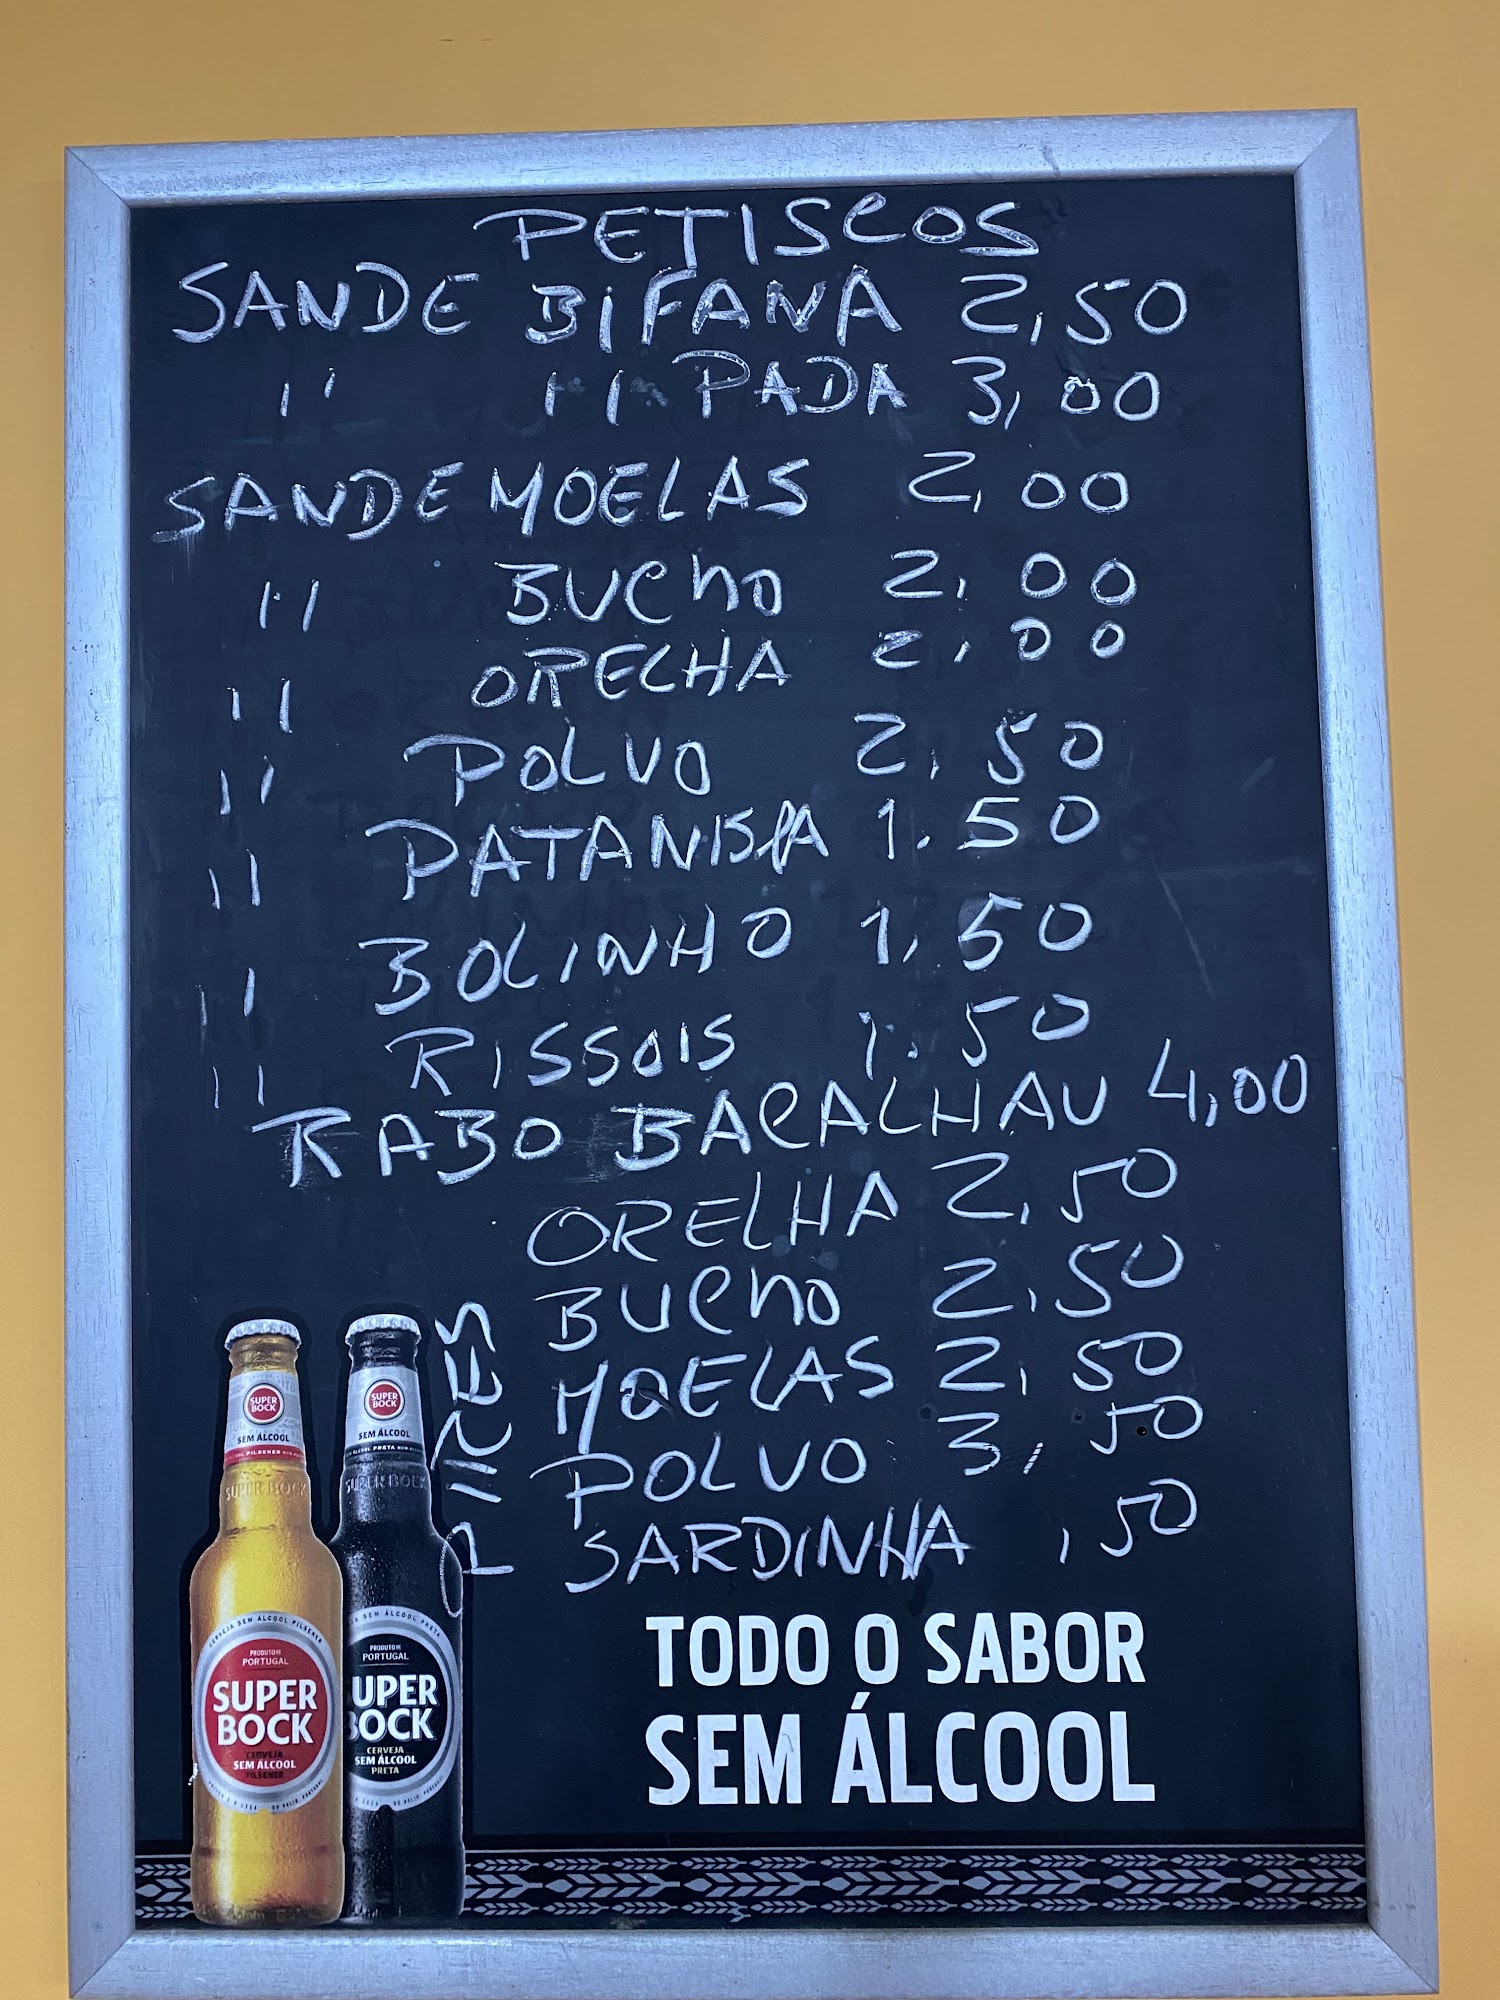 PETISCOS
SANDE BIFANA 2,50
" " PADA 3,00
SANDE MOELAS 2,00
" BUCHO 2,00
" ORELHA 2,00
" POLVO 2,50
" PATANISPA 1.50
" BOLINHO 1,50
" RISSOIS 1.50
RABO BACALHAU 4,00
PIRES
ORELHA 2,50
BUCHO 2,50
MOELAS 2,50
POLVO 3,50
SARDINHA ,50
TODO O SABOR
SEM ÁLCOOL
SUPER
BOCK
SEM ÁLCOOL
SUPER BOCK
CERVEJA SEM ÁLCOOL PILSENER
PRODUTO DE
PORTUGAL
SUPER
BOCK
CERVEJA
SEM ÁLCOOL
PILSENER
SUPER
BOCK
SEM ÁLCOOL
SUPER BOCK
PRODUTO DE
PORTUGAL
UPER
BOCK
CERVEJA
SEM ÁLCOOL
PRETA